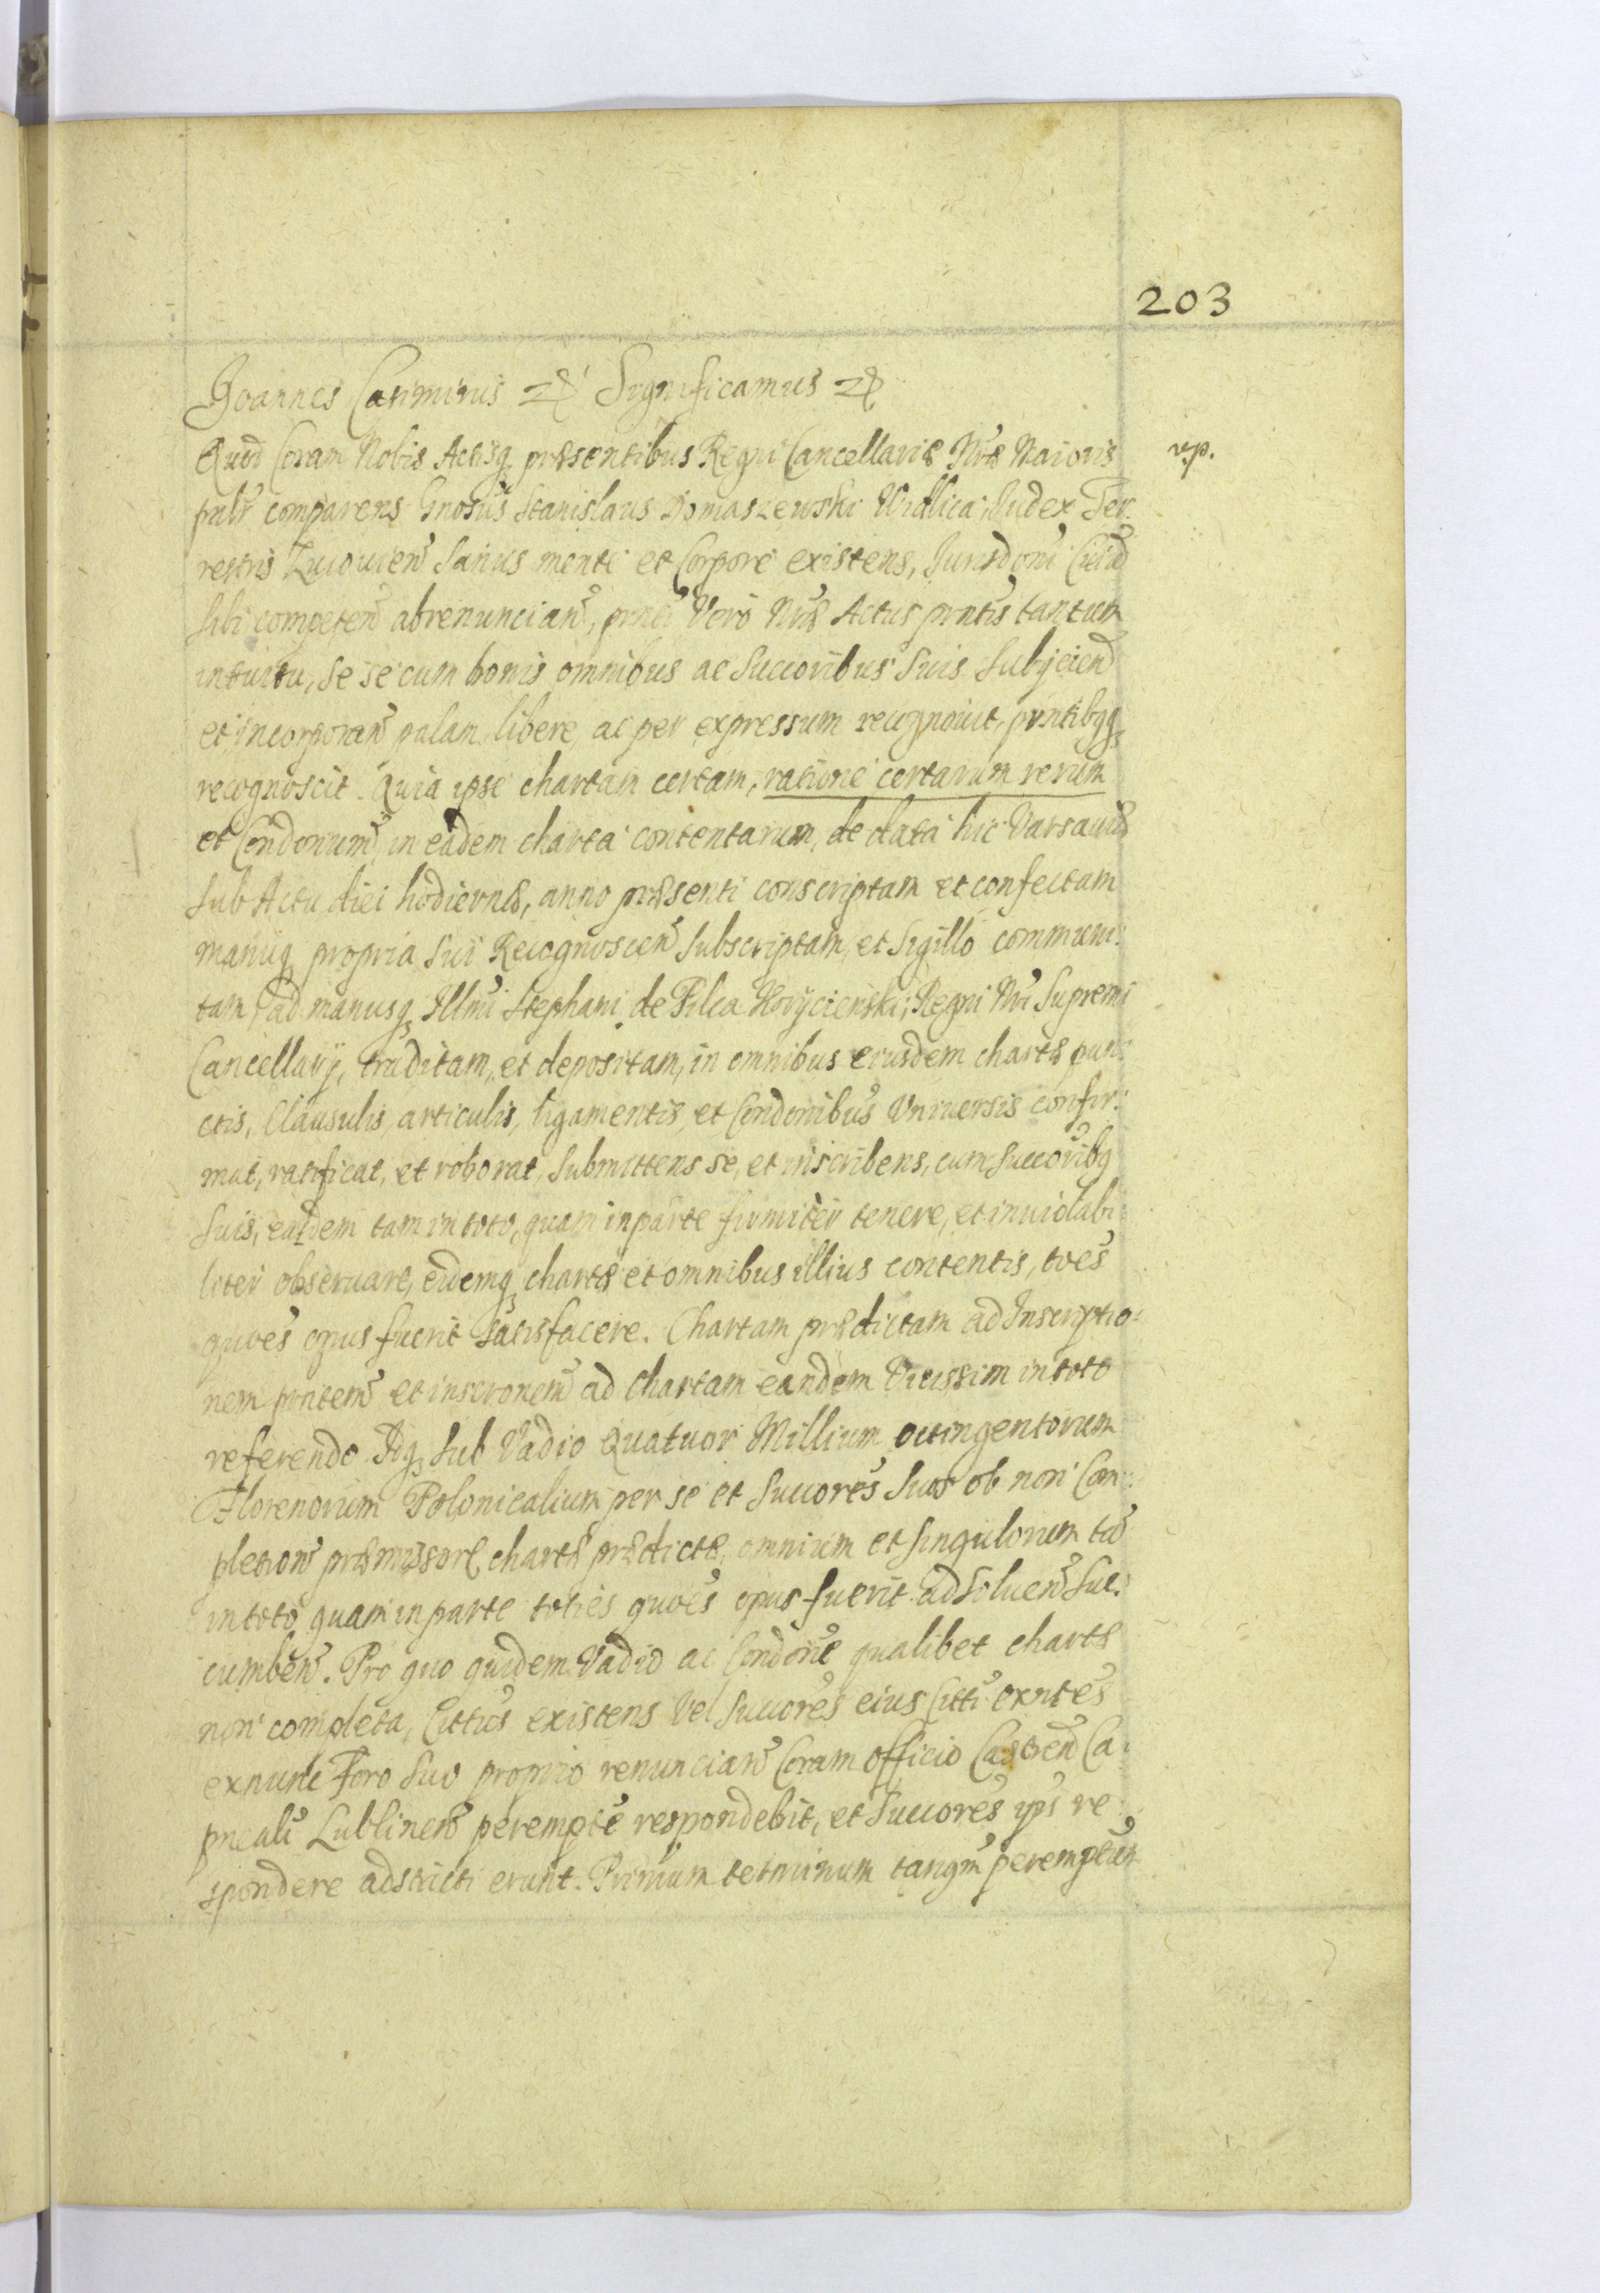 203
Joannes Casimirus etc. Significamus etc.
Quod Coram Nobis Actisq, præsentibus Regni Cancellariæ Nræ Maioris
rp.
psnlr comparens Gnosus Stanislaus Domaszewski Judex Ter:
restris Lucouien Sanus mente et Corpore existens, Jurisdoni Cuiuis
sibi competen abrenuncian, pnti Vero Nræ Actus pntis tantum
intuitu, se se cum bonis omnibus ac Succoribus Suis Subijcien
et incorporan palam libere, ac per expressum recognouit, pntibqq,
recognoscit. Quia ipse chartam certam, ratione certarum rerum
et Condonum, in eadem charta contentarum, de data hic Varsauiæ
Sub Actu diei hodiernæ, anno præsenti conscriptam et confectam
manuq, propria Sui Recognoscen Subscriptam, et Sigillo communi:
tam, ad manusq, Illmi Stephani de Pilca Koryciński, Regni Nri Supremi
Cancellarij, traditam, et depositam, in omnibus eiusdem chartæ pun:
ctis, Clausulis, articulis, ligamentis, et Condonibus Vniuersis confir:
mat, ratificat, et roborat, Submittens se, et inscribens, cum Succoribq
Suis, eandem tam in toto, quam in parte firmiter tenere, et inuiolabi:
liter obseruare, eidemq, chartæ et omnibus illius contentis, toes
quoes opus fuerit Satisfacere. Chartam prædictam ad Inscriptio:
nem pntem et inscronem ad chartam eandem Vicissim in toto
referendo. Idq, Sub Vadio Quatuor Millium octingentorum
Florenorum Polonicalium per se et Succores Suos ob non Com:
pletion præmissor, chartæ prædictæ, omnium et Singulorum tã
in toto quam in parte toties quoes opus fuerit adSoluen Suc:
cumben. Pro quo quidem Vadio ac Condone qualibet chartæ
non completa, Cittus existens Vel Succores eius Citti exntes
exnunc Foro Suo proprio renuncian Coram officio Castren Ca:
pneali Lublinen perempte respondebit, et Succores ipsi re:
spondere adstricti erunt. Primum terminum tanqm perempteum